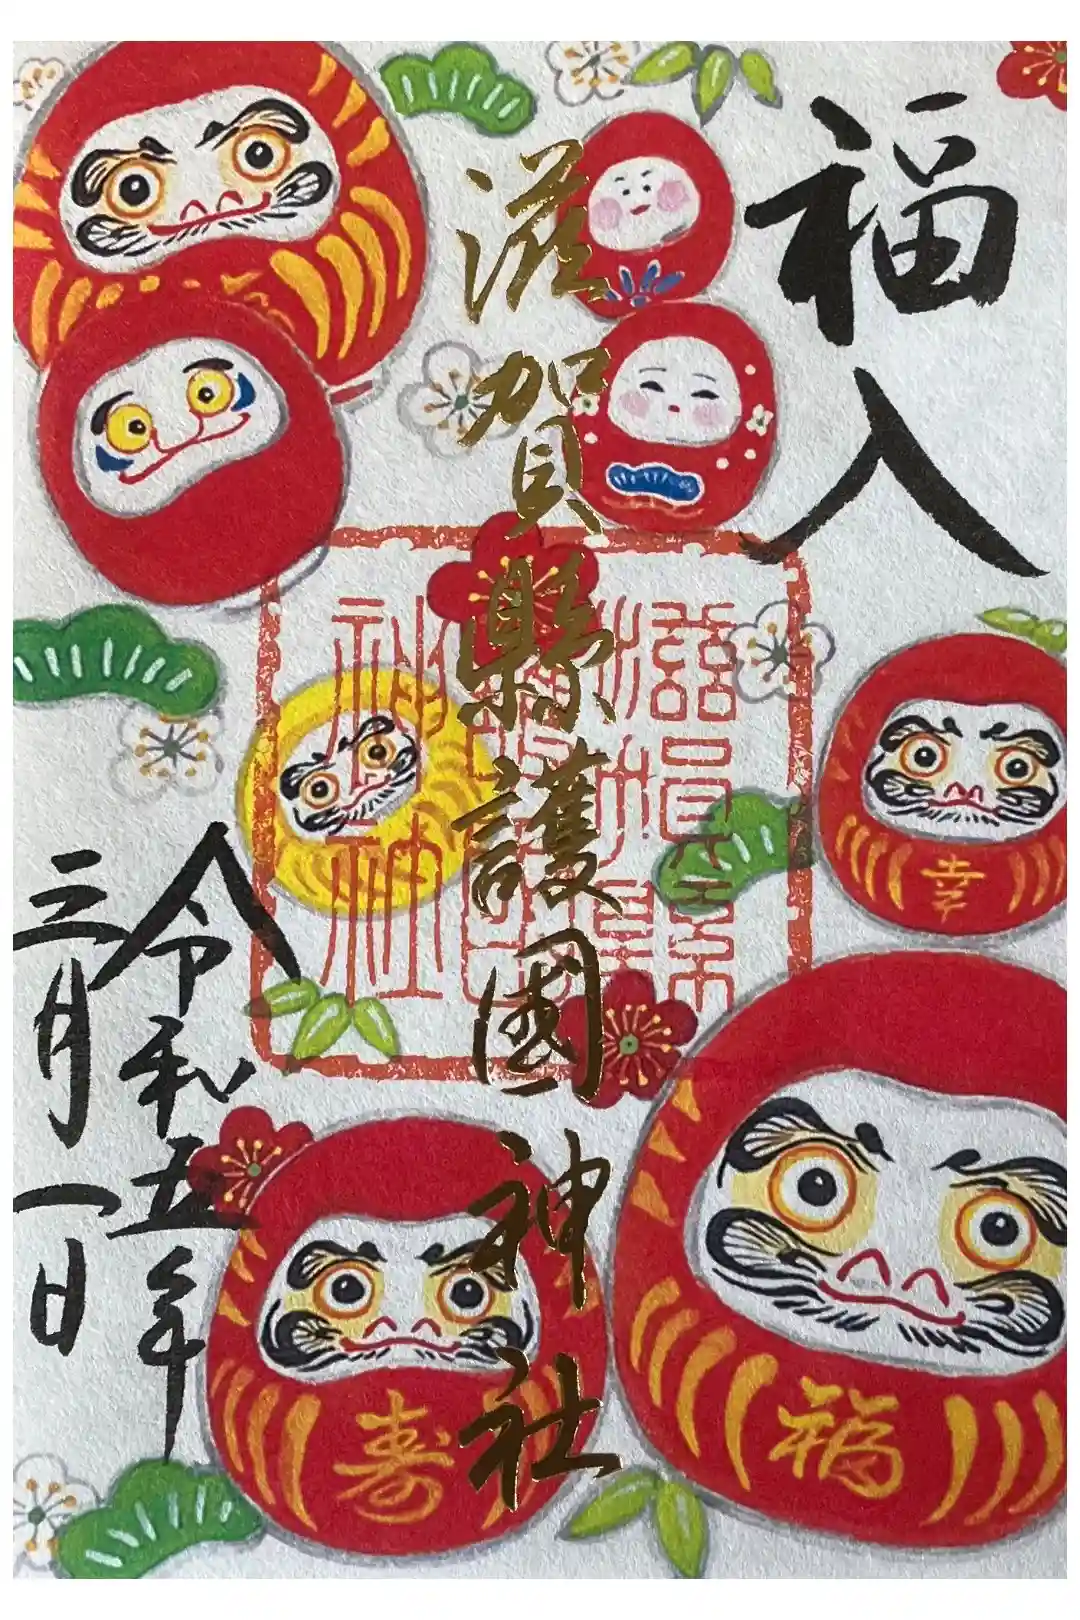 福入
滋賀縣護國神社
滋賀縣
護國
神社
令和五年
三月一日
幸
寿
福